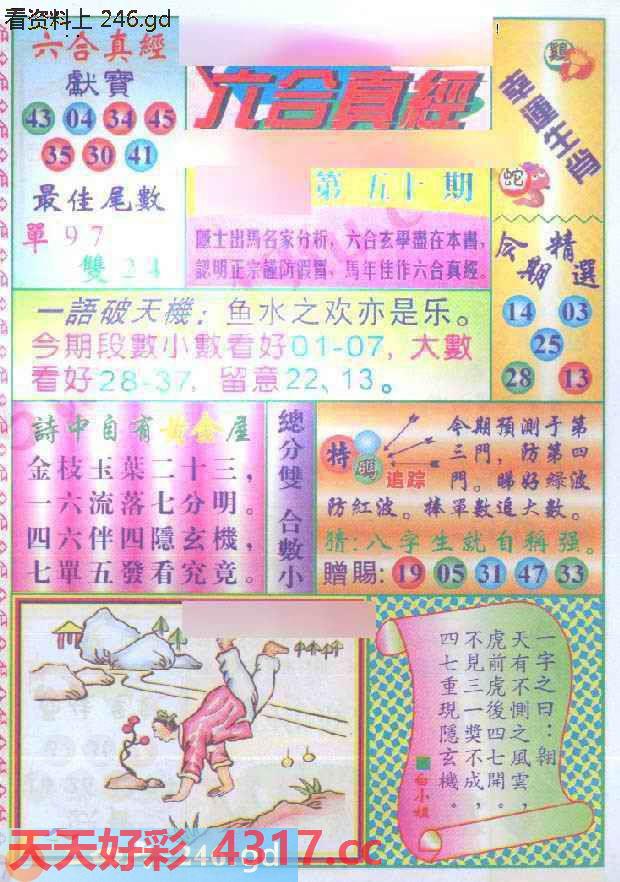 看资料上 246.gd
六合真經
獻寶
43 04 34 45
35 30 41
最佳尾數
單97
雙24
六合真經
第五十期
隱士出馬名家分析，六合玄學盡在本書，
認明正宗謹防假冒，馬年佳作六合真經。
幸運生肖
雞
蛇
今期精選
14 03
25
28 13
一語破天機：鱼水之欢亦是乐。
今期段數小數看好01-07，大數
看好28-37，留意22、13。
詩中自有黃金屋
金枝玉葉二十三，
一六流落七分明。
四六伴四隱玄機，
七單五發看究竟。
總分雙 合數小
特碼追踪
今期預測于第
三門，防第四
門。睇好綠波
防紅波。捧單數追大數。
猜：八字生就自稱强。
贈賜：19 05 31 47 33
一字之曰：翱
天有不惻之風雲，
虎前虎後四七開。
不見三一獎不成，
四七重現隱玄機。
白小姐
天天好彩 4317.cc
246.gd